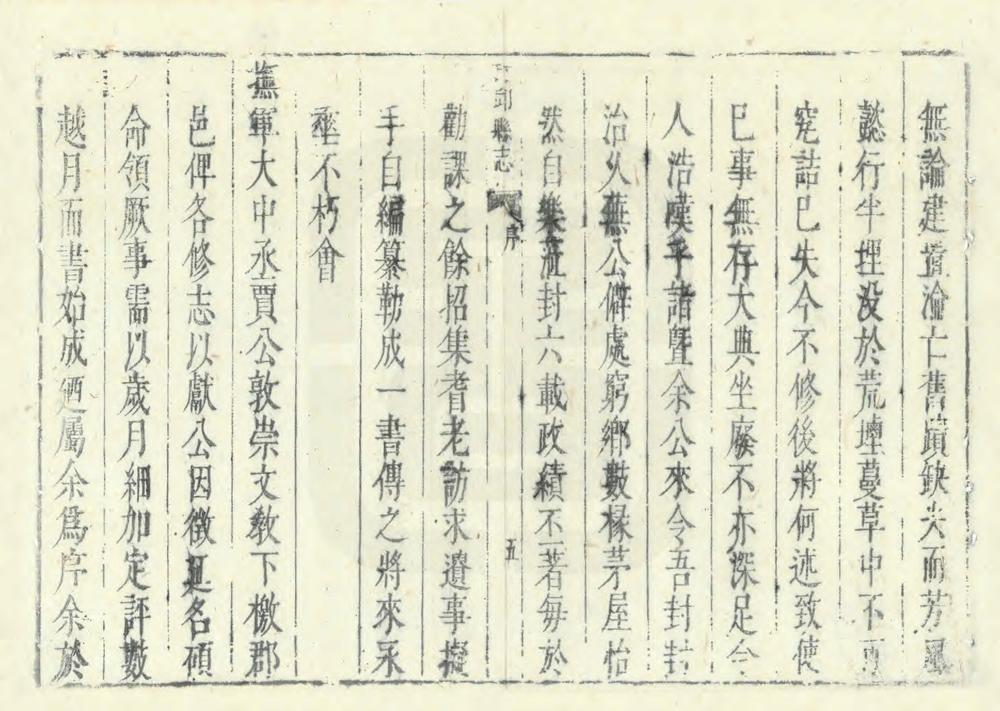 無論建置淪亡舊蹟缺失而芳風
懿行半埋没於荒壇蔓草中不可
究詰已失今不修後將何述致使
已事無存大典坐廢不亦深足令
人浩嘆乎諸暨余公來令吾封封
治久蕪公僻處窮鄉數椽茅屋怡
然自樂蒞封六載政績丕著每於
邱縣志
序
五
勸課之餘招集耆老訪求遺事擬
手自編纂勒成一書傳之將來永
垂不朽會
撫軍大中丞賈公敦崇文敎下檄郡
邑俾各修志以獻公因徵延名碩
命領厥事需以歲月細加定評數
越月而書始成廼屬余爲序余於